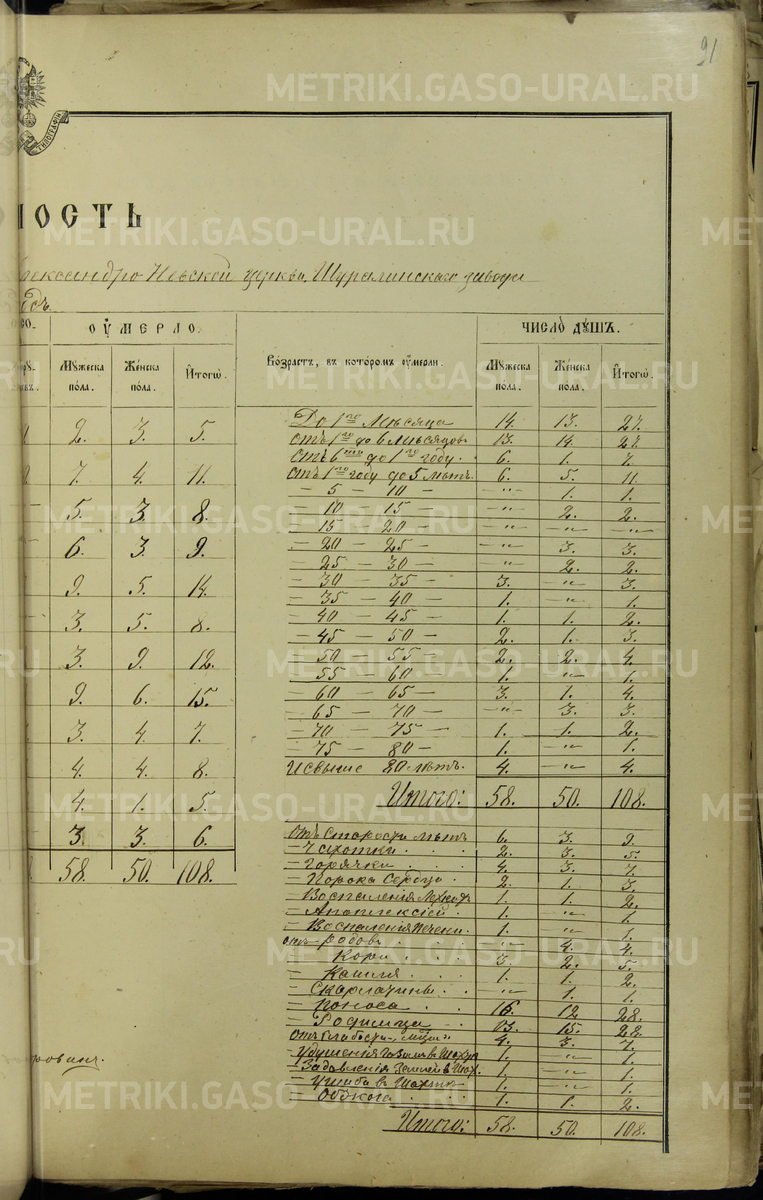 91
METRIKI.GASO-URAL.RU
ТИПОГРАФІЯ
ОСТЬ
METRIKI.GASO-URAL.RU
лександро Невской церкви, Шуралинскаго завода
ОУМЕРЛО.
ЧИСЛО ДУШЪ.
Мужеска пола. Женска пола. Итого.
Возрастъ, въ которомъ оумерли.
Мужеска пола. Женска пола. Итого.
2. 3. 5.
7. 4. 11.
5. 3 8.
6. 3 9.
9. 5. 14.
3. 5. 8.
3. 9. 12.
9. 6. 15.
3. 4. 7.
4. 4. 8.
4. 1. 5.
3. 3. 6.
58. 50. 108.
До 1го Мѣсяца 14. 13. 27.
отъ 1го до 6 Мѣсяцовъ 13. 14. 27.
отъ 6ти до 1го году. 6. 1. 7.
отъ 1го году до 5 лѣтъ. 6. 5. 11.
— 5 — 10 — " 1. 1.
— 10 15 — " 2. 2.
— 15 — 20 — " " "
— 20 — 25 — " 3. 3.
— 25 — 30 — " 2. 2.
— 30 — 35 — 3. " 3.
— 35 — 40 — 1. " 1.
— 40 — 45 — 1. 1. 2.
— 45 — 50 — 2. 1. 3.
— 50 — 55 — 2. 2. 4.
— 55 — 60 — 1. " 1.
— 60 — 65 — 3. 1. 4.
— 65 — 70 — " 3. 3.
— 70 — 75 — 1. 1. 2.
— 75 — 80 — 1. " 1.
И свыше 80 лѣтъ. 4. " 4.
Итого: 58. 50. 108.
отъ Старости лѣтъ 6. 3. 9.
— Чахотки 2. 3. 5.
— Горячки 4. 3. 7.
— Порока Сердца 2. 1. 3.
— Воспаленія Легкихъ 1. 1. 2.
— Апоплексіей 1. " 1.
— Воспаленія Печени. 1. " 1.
отъ родовъ " 4. 4.
— Кори 3. 2. 5.
— Кашля 1. 1. 2.
— Скарлатины " 1. 1.
— Поноса 16. 12 28.
— Родимца 13. 15. 28.
отъ Слабости 4. 3. 7.
— Удушенія Газами въ Шахтѣ 1. " 1.
— Задавленія Землей въ Шах. 1. " 1.
— Ушиба въ Шахтѣ 1. " 1.
— Обжога 1. 1. 2.
Итого: 58. 50. 108.